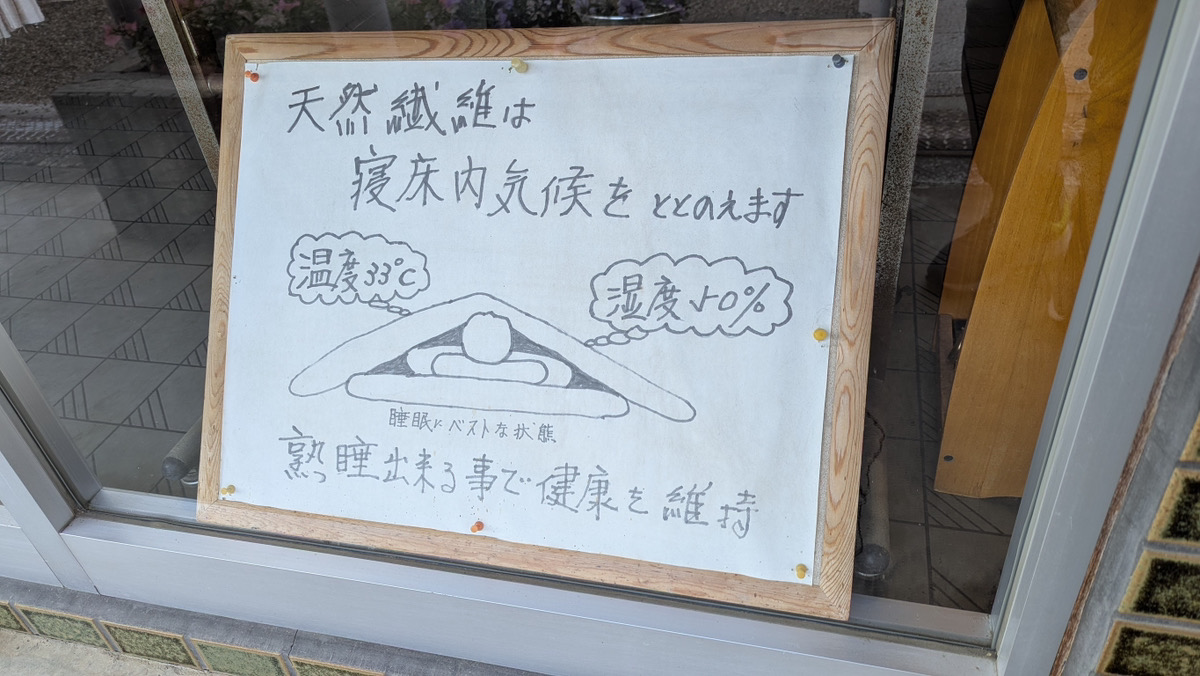 天然繊維は
寝床内気候をととのえます
温度33℃
湿度50%
睡眠にベストな状態
熟睡出来る事で健康を維持